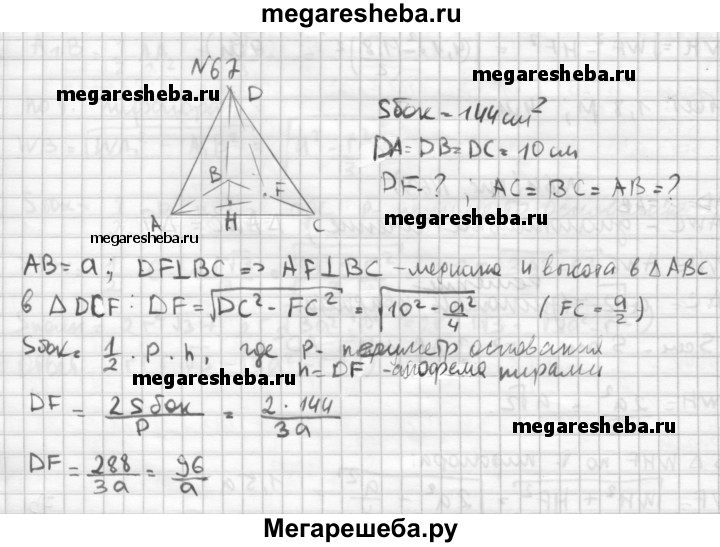 megaresheba.ru
№67
megaresheba.ru
megaresheba.ru
D
B
F
A
H
C
megaresheba.ru
Sбок = 144 см²
DA = DB = DC = 10 см
DF - ? ; AC = BC = AB = ?
megaresheba.ru
AB = a ; DF ⊥ BC => AF ⊥ BC - медиана и высота в ΔABC
в ΔDCF : DF = √(DC² - FC²) = √(10² - a²/4) (FC = a/2)
Sбок = 1/2 · P · h, где P - периметр основания
h = DF - апофема пирами
megaresheba.ru
DF = 2Sбок/P = 2·144/3a
megaresheba.ru
DF = 288/3a = 96/a
Мегарешеба.ру